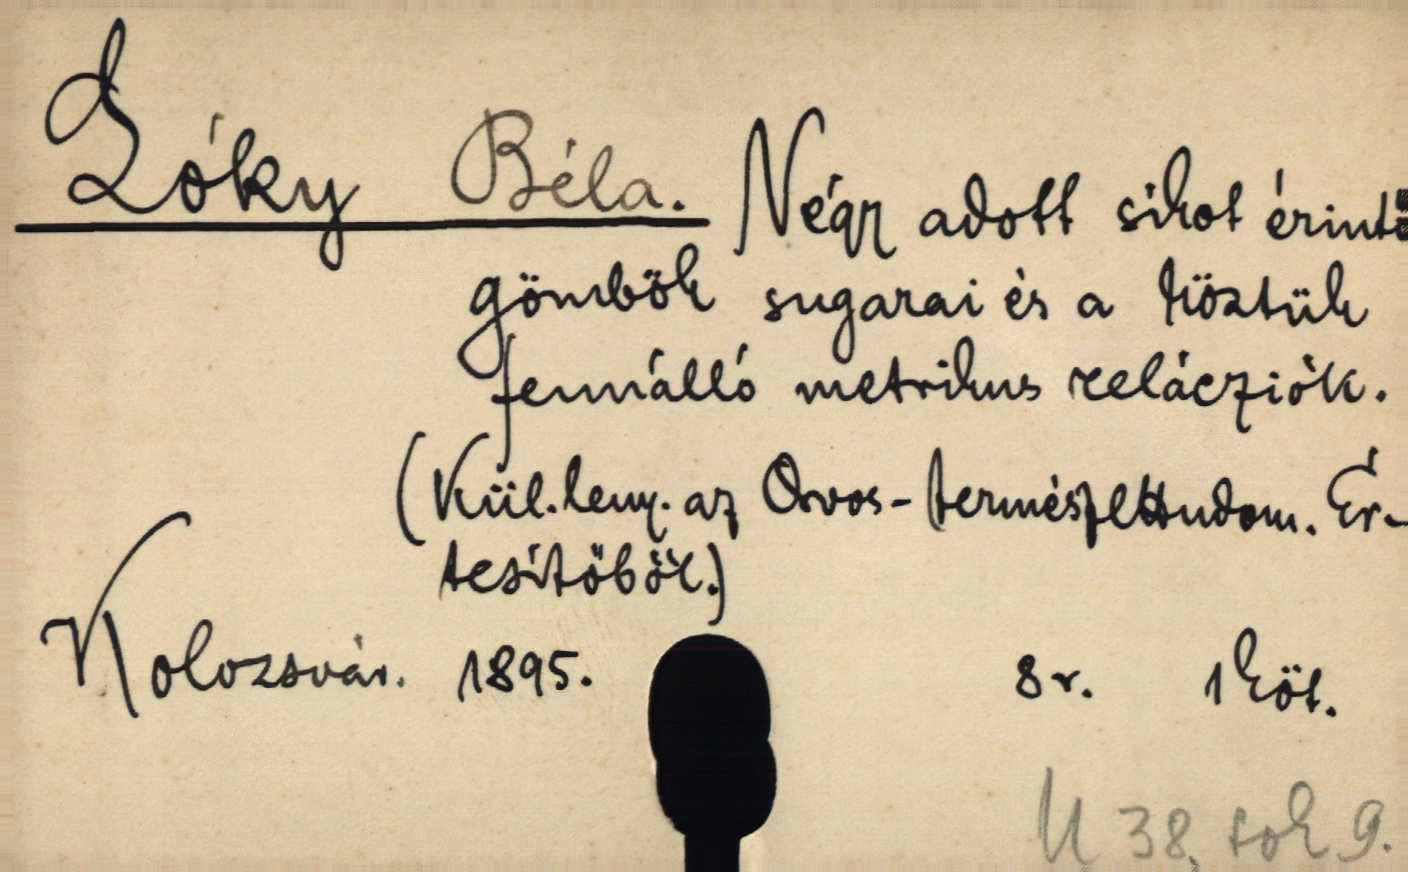 Lóky Béla. Négy adott síkot érintő
gömbök sugarai és a köztük
fennálló metrikus relácziók.
(Kül.leny. az Orvos-természettudom. Ér-
tesítőből.)
Kolozsvár. 1895. 8r. 1 köt.
U 38, sok 9.